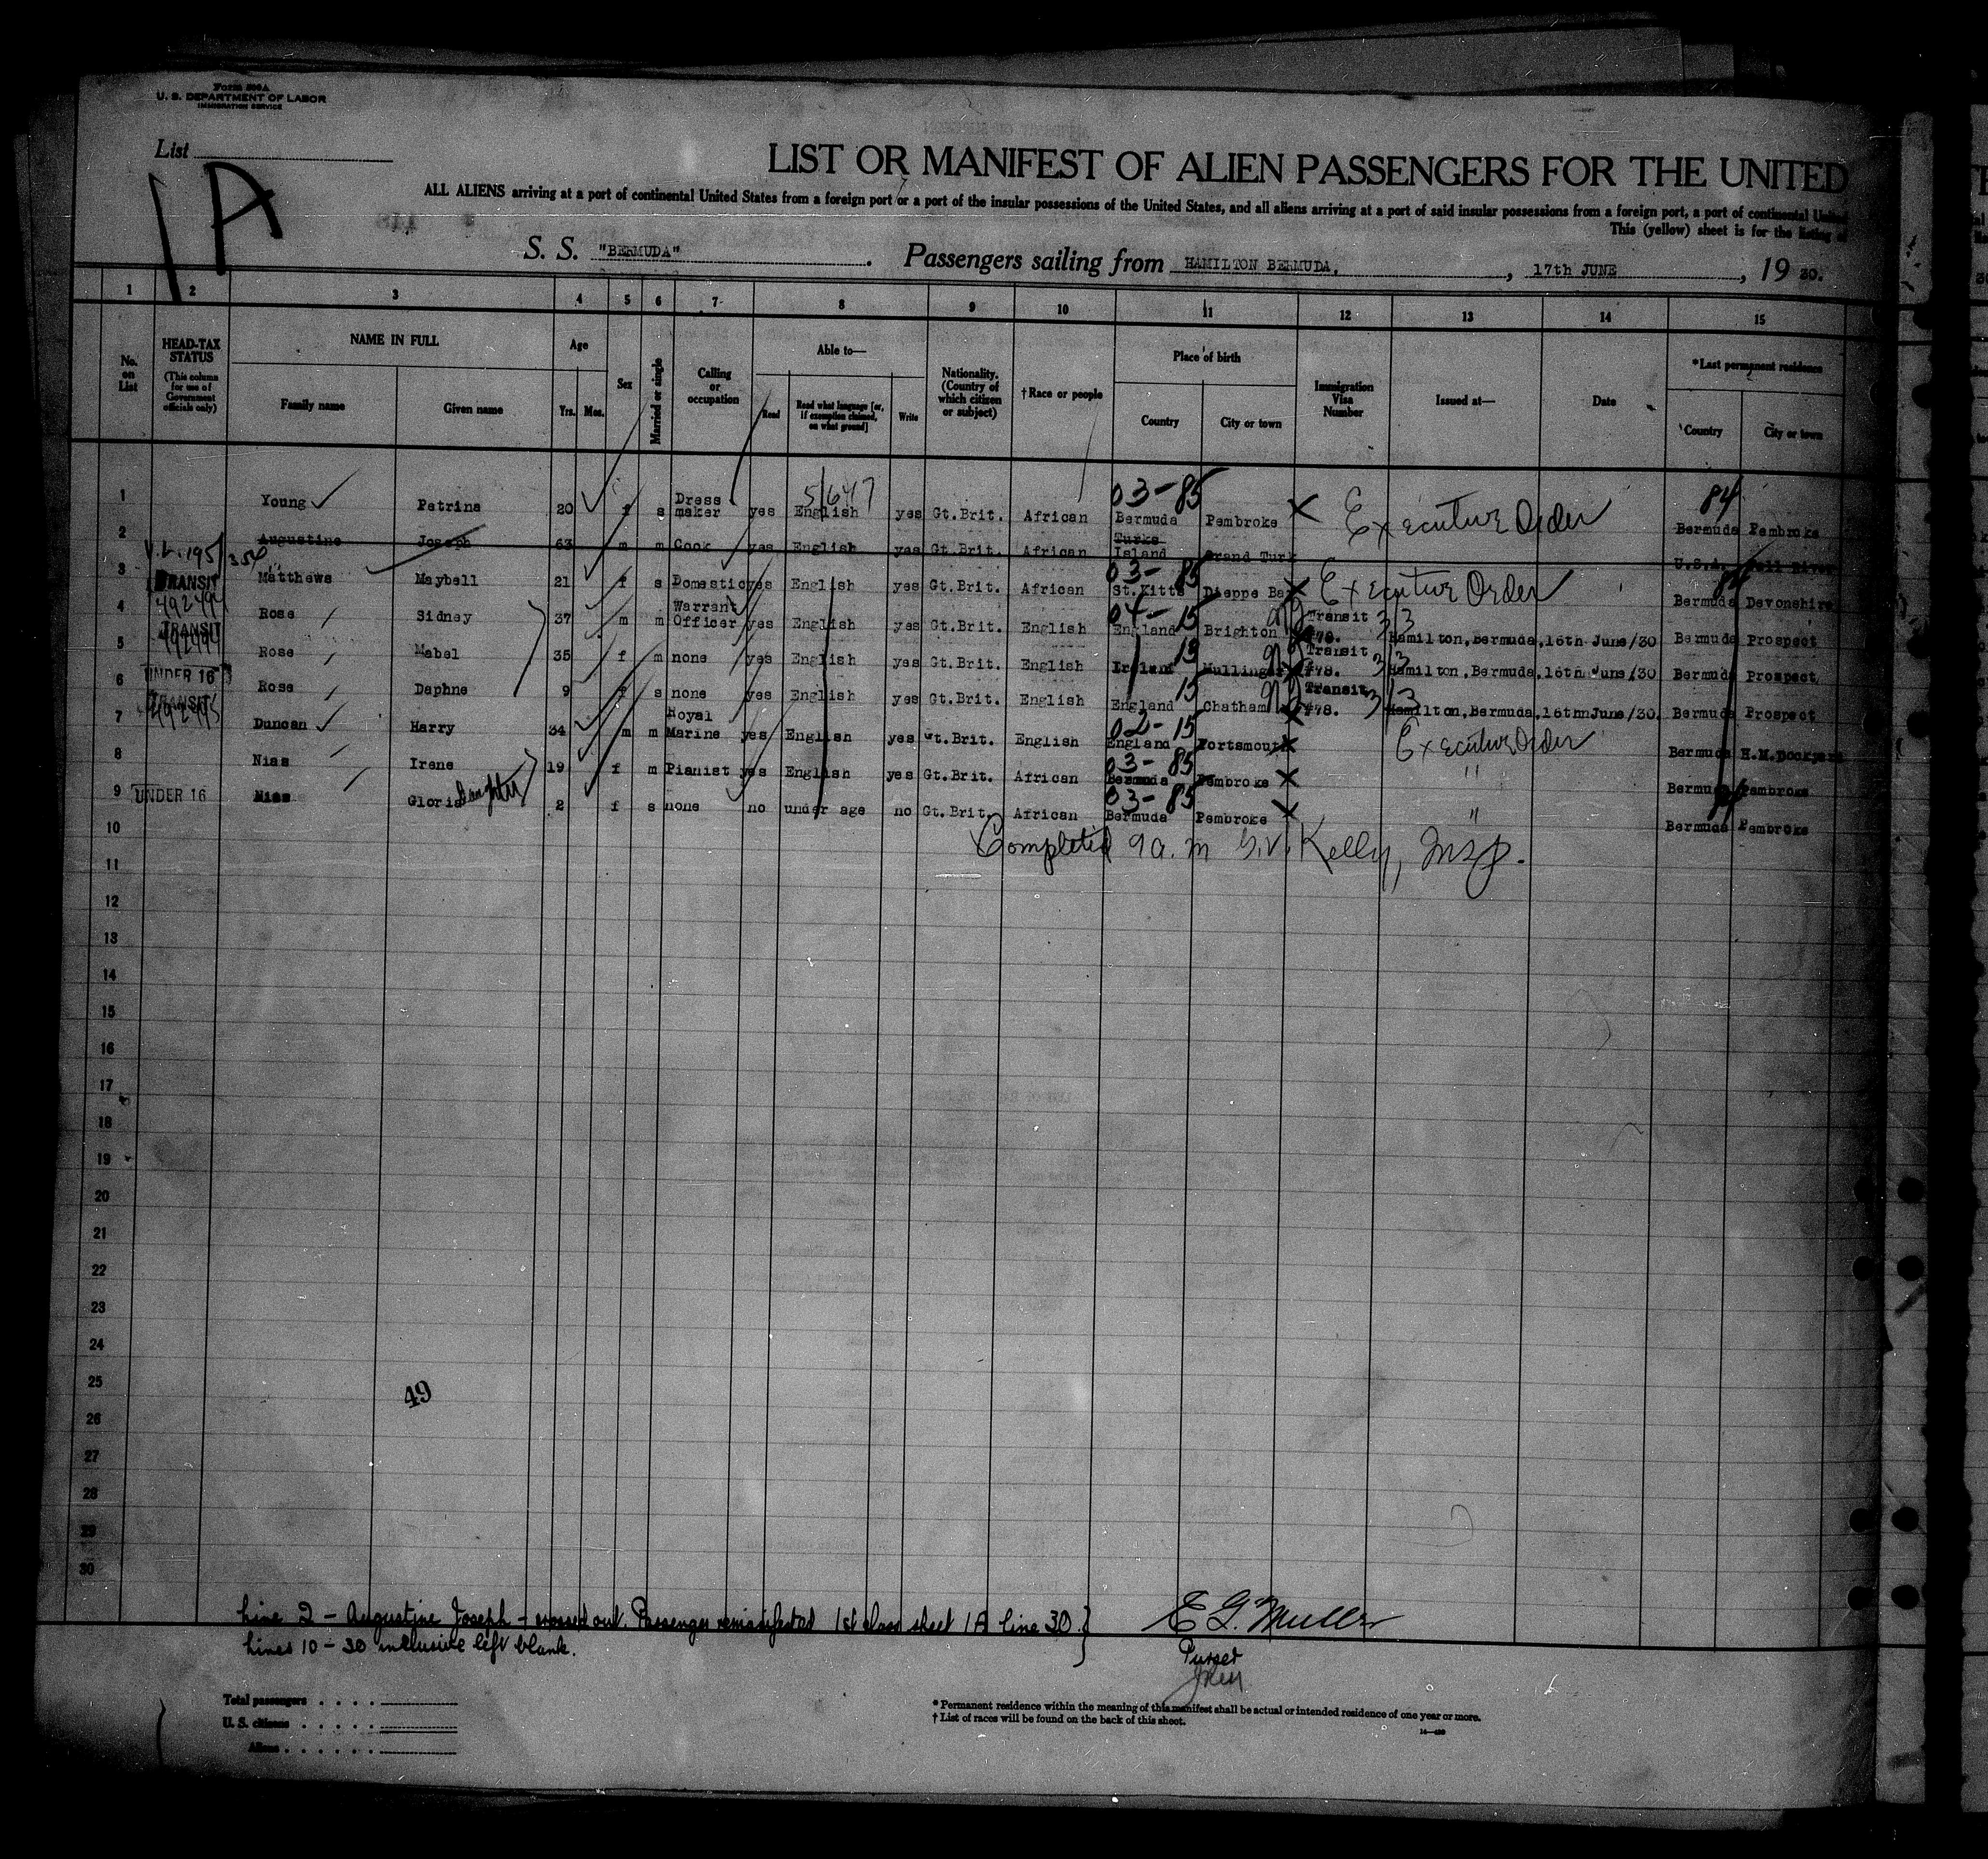 Form 500A
U. S. DEPARTMENT OF LABOR
IMMIGRATION SERVICE
List
1A
LIST OR MANIFEST OF ALIEN PASSENGERS FOR THE UNITED
ALL ALIENS arriving at a port of continental United States from a foreign port or a port of the insular possessions of the United States, and all aliens arriving at a port of said insular possessions from a foreign port, a port of continental United
This (yellow) sheet is for the listing of
S. S. "BERMUDA". Passengers sailing from HAMILTON BERMUDA, 17th JUNE, 1930.
1 2 3 4 5 6 7 8 9 10 11 12 13 14 15
No. on List
HEAD-TAX STATUS (This column for use of Government officials only)
NAME IN FULL Family name Given name
Age Yrs. Mos.
Sex
Married or single
Calling or occupation
Able to— Read Read what language [or, if exemption claimed, on what ground] Write
Nationality. (Country of which citizen or subject)
†Race or people
Place of birth Country City or town
Immigration Visa Number
Issued at—
Date
*Last permanent residence Country City or town
1 Young Petrina 20 f s Dress maker yes English yes Gt.Brit. African 03-85 Bermuda Pembroke X Executive Order 84 Bermuda Pembroke
2 Augustine Joseph 63 m m Cook yes English yes Gt.Brit. African Turks Island Grand Turk U.S.A. Fall River
3 TRANSIT Matthews Maybell 21 f s Domestic yes English yes Gt.Brit. African 03-85 St.Kitts Dieppe Bay X Executive Order 84 Bermuda Devonshire
4 TRANSIT Rose Sidney 37 m m Warrant Officer yes English yes Gt.Brit. English 04-15 England Brighton Transit #78. 3/3 Hamilton,Bermuda,16th June/30 Bermuda Prospect
5 Rose Mabel 35 f m none yes English yes Gt.Brit. English Ireland Mullingar Transit #78. 3/3 Hamilton,Bermuda,16th June/30 Bermuda Prospect
6 UNDER 16 TRANSIT Rose Daphne 9 f s none yes English yes Gt.Brit. English 15 England Chatham Transit #78. 3/3 Hamilton,Bermuda,16thnJune/30. Bermuda Prospect
7 Duncan Harry 34 m m Royal Marine yes English yes Gt.Brit. English 02-15 England Portsmouth X Executive Order Bermuda H.M.Dockyard
8 Nias Irene 19 f m Pianist yes English yes Gt.Brit. African 03-85 Bermuda Pembroke X " Bermuda Pembroke
9 UNDER 16 Nias Gloria daughter 2 f s none no under age no Gt.Brit. African 03-85 Bermuda Pembroke X " Bermuda Pembroke
10 Completed 9 a.m. Kelly, Insp.
11
12
13
14
15
16
17
18
19
20
21
22
23
24
25
49
26
27
28
29
30
Line 2 - Augustine Joseph - crossed out. Passenger remanifested 1st class sheet 1A line 30.
Lines 10-30 inclusive left blank.
E G Muller
Purser
Total passengers
U. S. citizens
Aliens
* Permanent residence within the meaning of this manifest shall be actual or intended residence of one year or more.
† List of races will be found on the back of this sheet.